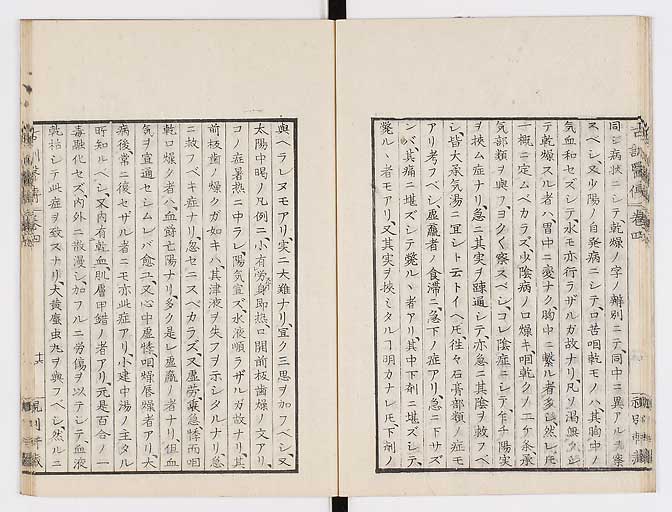 同シ病状ニシテ、乾燥ノ字ノ辨別ニテ、同中ニ異アルヲ察
スベシ、又少陽ノ自発病ニシテ口苦咽乾モノハ其胸中ノ
気血和セズシテ、水モ亦行ラザルガ故ナリ、凡ソ渇無クシ
テ乾燥スル者ハ、胃中ニ変ナク、胸中ニ繋ル者多シ、然レ𪜈
一概ニ定ムベカラズ、少陰病ノ口燥キ咽乾クノ一ケ条、承
気部類ヲ與フ、ヨク〱察スベシ、コレ陰症ニシテ乍チ陽実
ヲ挟ム症ナリ、急ニ其実ヲ疎通シテ、亦急ニ其陰ヲ救フベ
シ、皆大承気湯ニ宜シト云トイヘ𪜈、往々石膏部類ノ症モ
アリ、考フベシ、虚羸者ノ食滞ニ、急下ノ症アリ、急ニ下サズ
ンバ、其痛ニ堪ズシテ斃ルヽ者アリ、其中下剤ニ堪ズシテ、
斃ルヽ者モアリ、又其実ヲ挟ミタルヿ明カナレ𪜈、下剤ノ
與ヘラレヌモアリ、実ニ大難ナリ、宜ク三思ヲ加フベシ、又
太陽中暍ノ凡例ニ、小有労身即熱、口開前板歯燥ノ文アリ、
コノ症暑熱ニ中ラレ、陽気宣ズ、水液順ラザルガ故ナリ、其
前板歯ノ燥クガ如キハ、其津液ヲ失フヲ示シタルナリ、急
ニ救フベキ症ナリ、忽セニスベカラズ、又虚労裏急、悸而咽
乾口燥ク者ハ、血欝亡陽ナリ、多ク是レ虚羸ノ者ナリ、但血
気ヲ宣通セシムレバ愈ユ、又心中虚悸、咽燥唇燥者アリ、大
病後、常ニ復セザル者ニモ亦此症アリ、小建中湯ノ主タル
所知ルベシ、又内有乾血、肌膚甲錯ノ者アリ、元是百合ノ一
毒融化セズ、内外ニ散漫シ、加フルニ労傷ヲ以テシテ、血液
乾枯シテ此症ヲ致スナリ、大黄䗪虫丸ヲ與フベシ、然ルニ